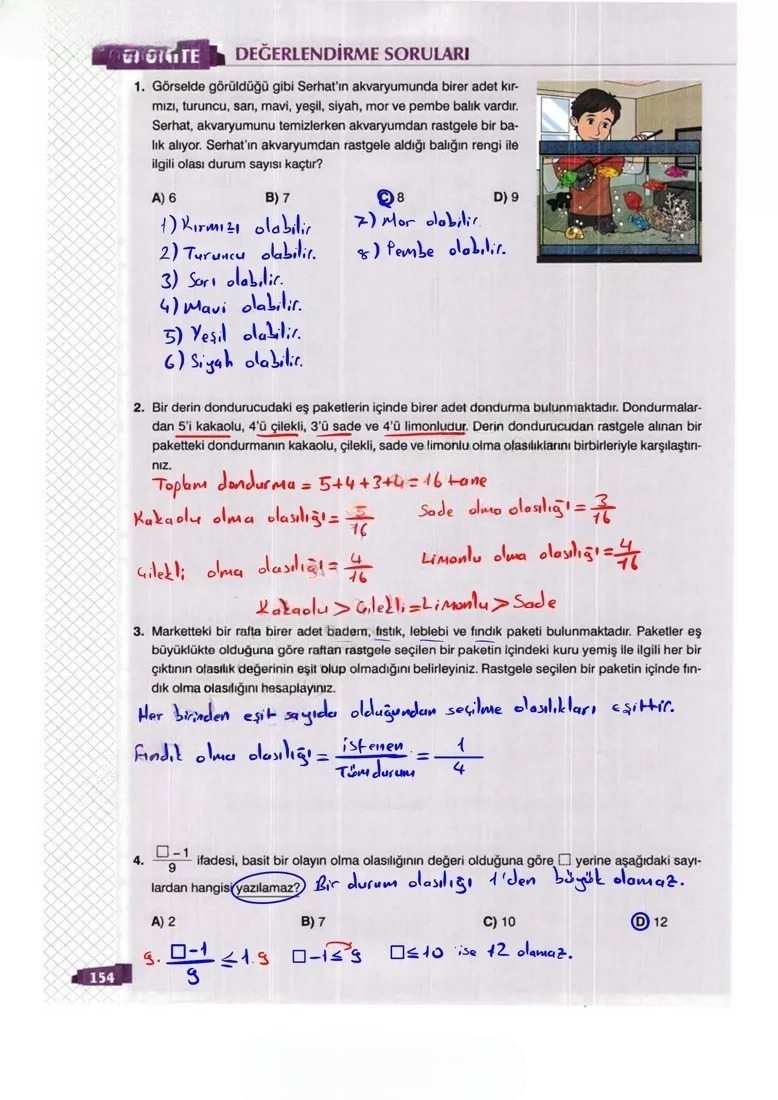 ÜNİTE DEĞERLENDİRME SORULARI
1. Görselde görüldüğü gibi Serhat'ın akvaryumunda birer adet kır-
mızı, turuncu, sarı, mavi, yeşil, siyah, mor ve pembe balık vardır.
Serhat, akvaryumunu temizlerken akvaryumdan rastgele bir ba-
lık alıyor. Serhat'ın akvaryumdan rastgele aldığı balığın rengi ile
ilgili olası durum sayısı kaçtır?
A) 6 B) 7 C) 8 D) 9
1) Kırmızı olabilir 7) Mor olabilir
2) Turuncu olabilir. 8) Pembe olabilir.
3) Sarı olabilir.
4) Mavi olabilir.
5) Yeşil olabilir.
6) Siyah olabilir.
2. Bir derin dondurucudaki eş paketlerin içinde birer adet dondurma bulunmaktadır. Dondurmalar-
dan 5'i kakaolu, 4'ü çilekli, 3'ü sade ve 4'ü limonludur. Derin dondurucudan rastgele alınan bir
paketteki dondurmanın kakaolu, çilekli, sade ve limonlu olma olasılıklarını birbirleriyle karşılaştırı-
nız.
Toplam dondurma = 5+4+3+4 = 16 tane
Kakaolu olma olasılığı = 5/16 Sade olma olasılığı = 3/16
Çilekli olma olasılığı = 4/16 Limonlu olma olasılığı = 4/16
Kakaolu > Çilekli = Limonlu > Sade
3. Marketteki bir rafta birer adet badem, fıstık, leblebi ve fındık paketi bulunmaktadır. Paketler eş
büyüklükte olduğuna göre raftan rastgele seçilen bir paketin içindeki kuru yemiş ile ilgili her bir
çıktının olasılık değerinin eşit olup olmadığını belirleyiniz. Rastgele seçilen bir paketin içinde fın-
dık olma olasılığını hesaplayınız.
Her birinden eşit sayıda olduğundan seçilme olasılıkları eşittir.
Fındık olma olasılığı = istenen/Tüm durum = 1/4
4. □-1/9 ifadesi, basit bir olayın olma olasılığının değeri olduğuna göre □ yerine aşağıdaki sayı-
lardan hangisi yazılamaz? Bir durum olasılığı 1'den büyük olamaz.
A) 2 B) 7 C) 10 D) 12
9. □-1/9 ≤ 1.9 □-1≤9 □≤10 ise 12 olamaz.
154